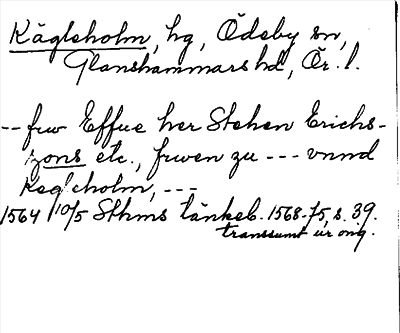 Kägleholm, hg, Ödeby sn,
Glanshammars hd, Ör. l.
-- frw Effue her Stehen Erichs-
zons etc., frwen zu --- vnnd
Kegleholm, ---
1564 10/5 Sthms tänkeb. 1568-75, s. 39.
transsumt ur orig.